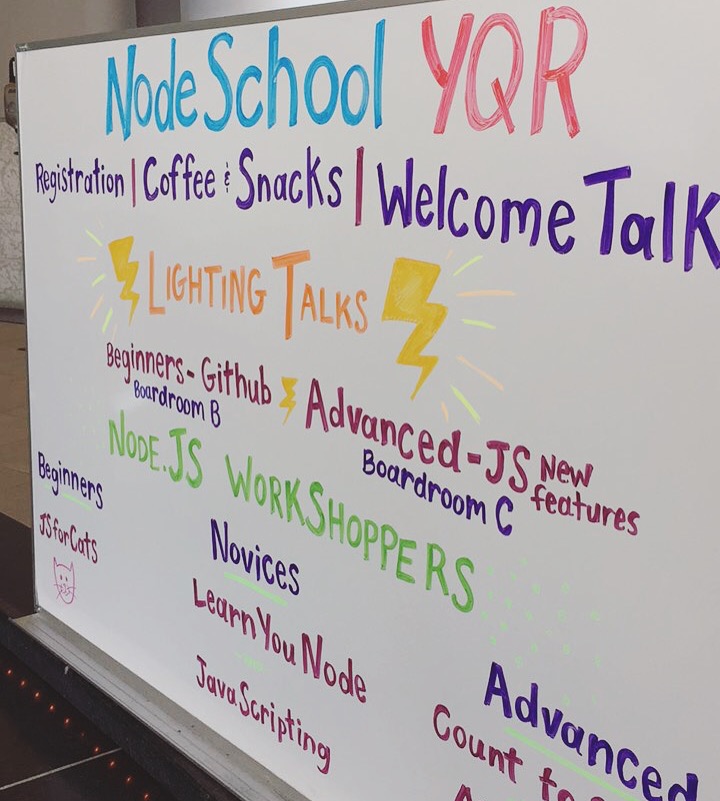 NodeSchool YQR
Registration | Coffee & Snacks | Welcome Talk
LIGHTING TALKS
Beginners - Github
Boardroom B
Advanced - JS New features
Boardroom C
NODE.JS WORKSHOPPERS
Beginners
JSforCats
Novices
LearnYouNode
JavaScripting
Advanced
Count to